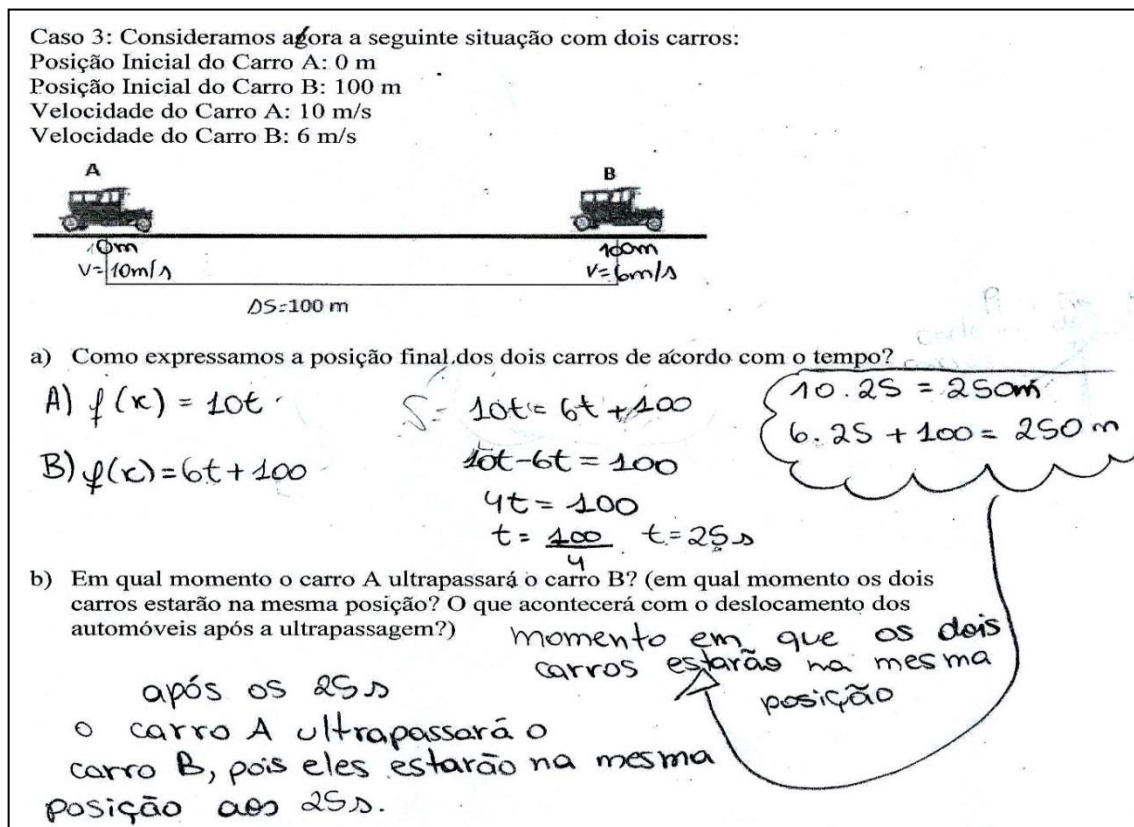 Caso 3: Consideramos agora a seguinte situação com dois carros:
Posição Inicial do Carro A: 0 m
Posição Inicial do Carro B: 100 m
Velocidade do Carro A: 10 m/s
Velocidade do Carro B: 6 m/s
A B
0m 100m
V=10m/s V=6m/s
ΔS=100 m
a) Como expressamos a posição final dos dois carros de acordo com o tempo?
A) f(x) = 10t
B) f(x) = 6t + 100
S = 10t = 6t + 100
10t - 6t = 100
4t = 100
t = 100/4 t = 25 s
10 . 25 = 250m
6. 25 + 100 = 250 m
b) Em qual momento o carro A ultrapassará o carro B? (em qual momento os dois
carros estarão na mesma posição? O que acontecerá com o deslocamento dos
automóveis após a ultrapassagem?)
momento em que os dois
carros estarão na mesma
posição
após os 25 s
o carro A ultrapassará o
carro B, pois eles estarão na mesma
posição aos 25 s.